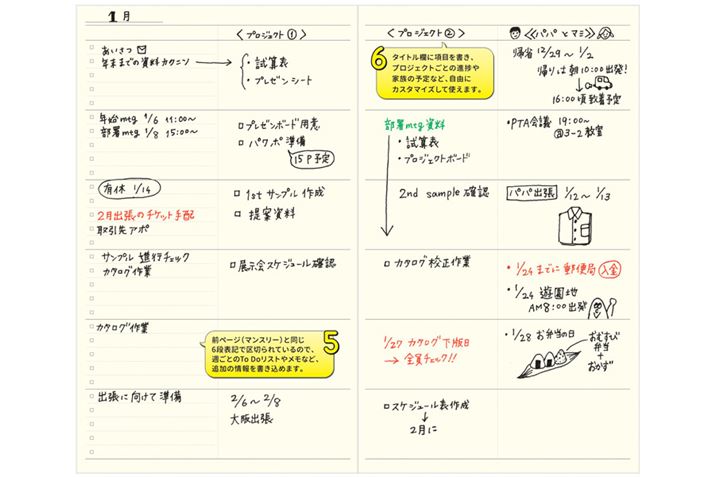 1月
あいさつ
年末までの資料カクニン
年始mtg 1/6 11:00〜
部署mtg 1/8 15:00〜
有休 1/14
2月出張のチケット手配
取引先アポ
サンプル進行チェック
カタログ作業
カタログ作業
出張に向けて準備
〈プロジェクト①〉
・試算表
・プレゼンシート
プレゼンボード用意
パワポ準備
15P予定
1stサンプル作成
提案資料
展示会スケジュール確認
前ページ(マンスリー)と同じ
6段表記で区切られているので、
週ごとのTo Doリストやメモなど、
追加の情報を書き込めます。
5
2/6〜2/8
大阪出張
〈プロジェクト②〉
6
タイトル欄に項目を書き、
プロジェクトごとの進捗や
家族の予定など、自由に
カスタマイズして使えます。
部署mtg資料
・試算表
・プロジェクトボード
2nd sample確認
カタログ校正作業
1/27 カタログ下版日
→全員チェック!!
スケジュール表作成
↓
2月に
《パパとマミ》
帰省 12/29〜1/2
帰りは朝10:00出発!
16:00頃到着予定
・PTA会議 19:00〜
3-2教室
パパ出張 1/12〜1/13
・1/24までに郵便局 入金
・1/24 遊園地
AM8:00出発
・1/28 お弁当の日
おむすび
弁当
+
おかず